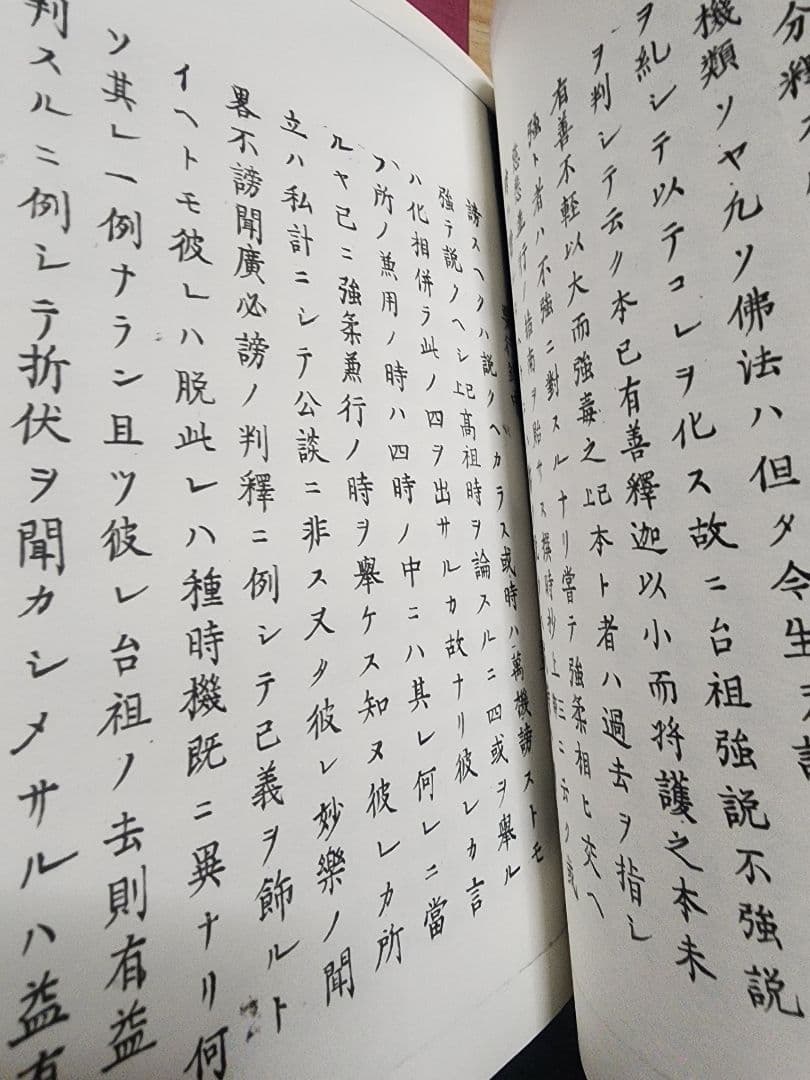 分釋ス
機類ソヤ九ソ佛法ハ但タ今生
ヲ糺シテ以テコレヲ化ス故ニ台祖強説不強説
ヲ判シテ云ク本已有善釋迦以小而将護之本未
有善不輕以大而強毒之上已本ト者ハ過去ヲ指シ
強ト者ハ不強ニ對スルナリ嘗テ強条相ヒ交ヘ
慈悲並行ノ指南ヲ貽サス撰時抄上三ニ云ク或
謗スヘクハ説クヘカラス或時ハ萬機謗ストモ
強テ説クヘシ上已髙祖時ヲ論スルニ四或ヲ舉ル
ハ化相併ラ此ノ四ヲ出サルカ故ナリ彼レカ言
ハ所ノ兼用ノ時ハ四時ノ中ニハ其レ何レニ當
ルヤ已ニ強条兼行ノ時ヲ舉ケス知ヌ彼レカ所
立ハ私計ニシテ公談ニ非ス又タ彼レ妙樂ノ聞
畧不謗聞廣必謗ノ判釋ニ例シテ已義ヲ飾ルト
イヘトモ彼レハ脱此レハ種時機既ニ異ナリ何
ソ其レ一例ナラン且ツ彼レ台祖ノ去則有益
判スルニ例シテ折伏ヲ聞カシメサルハ益有